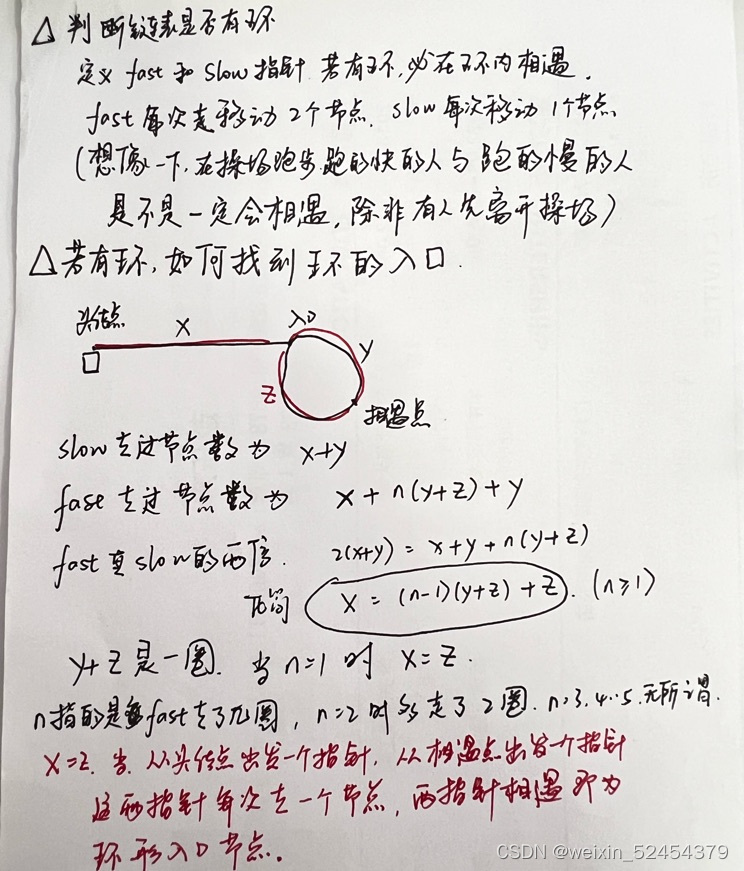 △ 判断链表是否有环
定义 fast 和 slow 指针 若有环,必在环内相遇.
fast 每次走移动 2个节点. slow 每次移动 1个节点
(想像一下,在操场跑步跑的快的人与跑的慢的人
是不是一定会相遇,除非有人先离开操场)
△若有环,如何找到环的入口.
头结点
X
入口
y
z
相遇点
slow 走过节点数为 x+y
fast 走过节点数为 x+n(y+z)+y
fast 是 slow 的两倍. 2(x+y) = x+y+n(y+z)
化简 x = (n-1)(y+z)+z. (n≥1)
y+z 是一圈. 当 n=1 时 x=z.
n指的是fast走了几圈, n=2时 走了2圈. n=3.4..5.无所谓.
x=z. 当. 从头结点出发一个指针, 从相遇点出发一个指针
这两指针每次走一个节点, 两指针相遇即为
环形入口节点.
CSDN @weixin_52454379